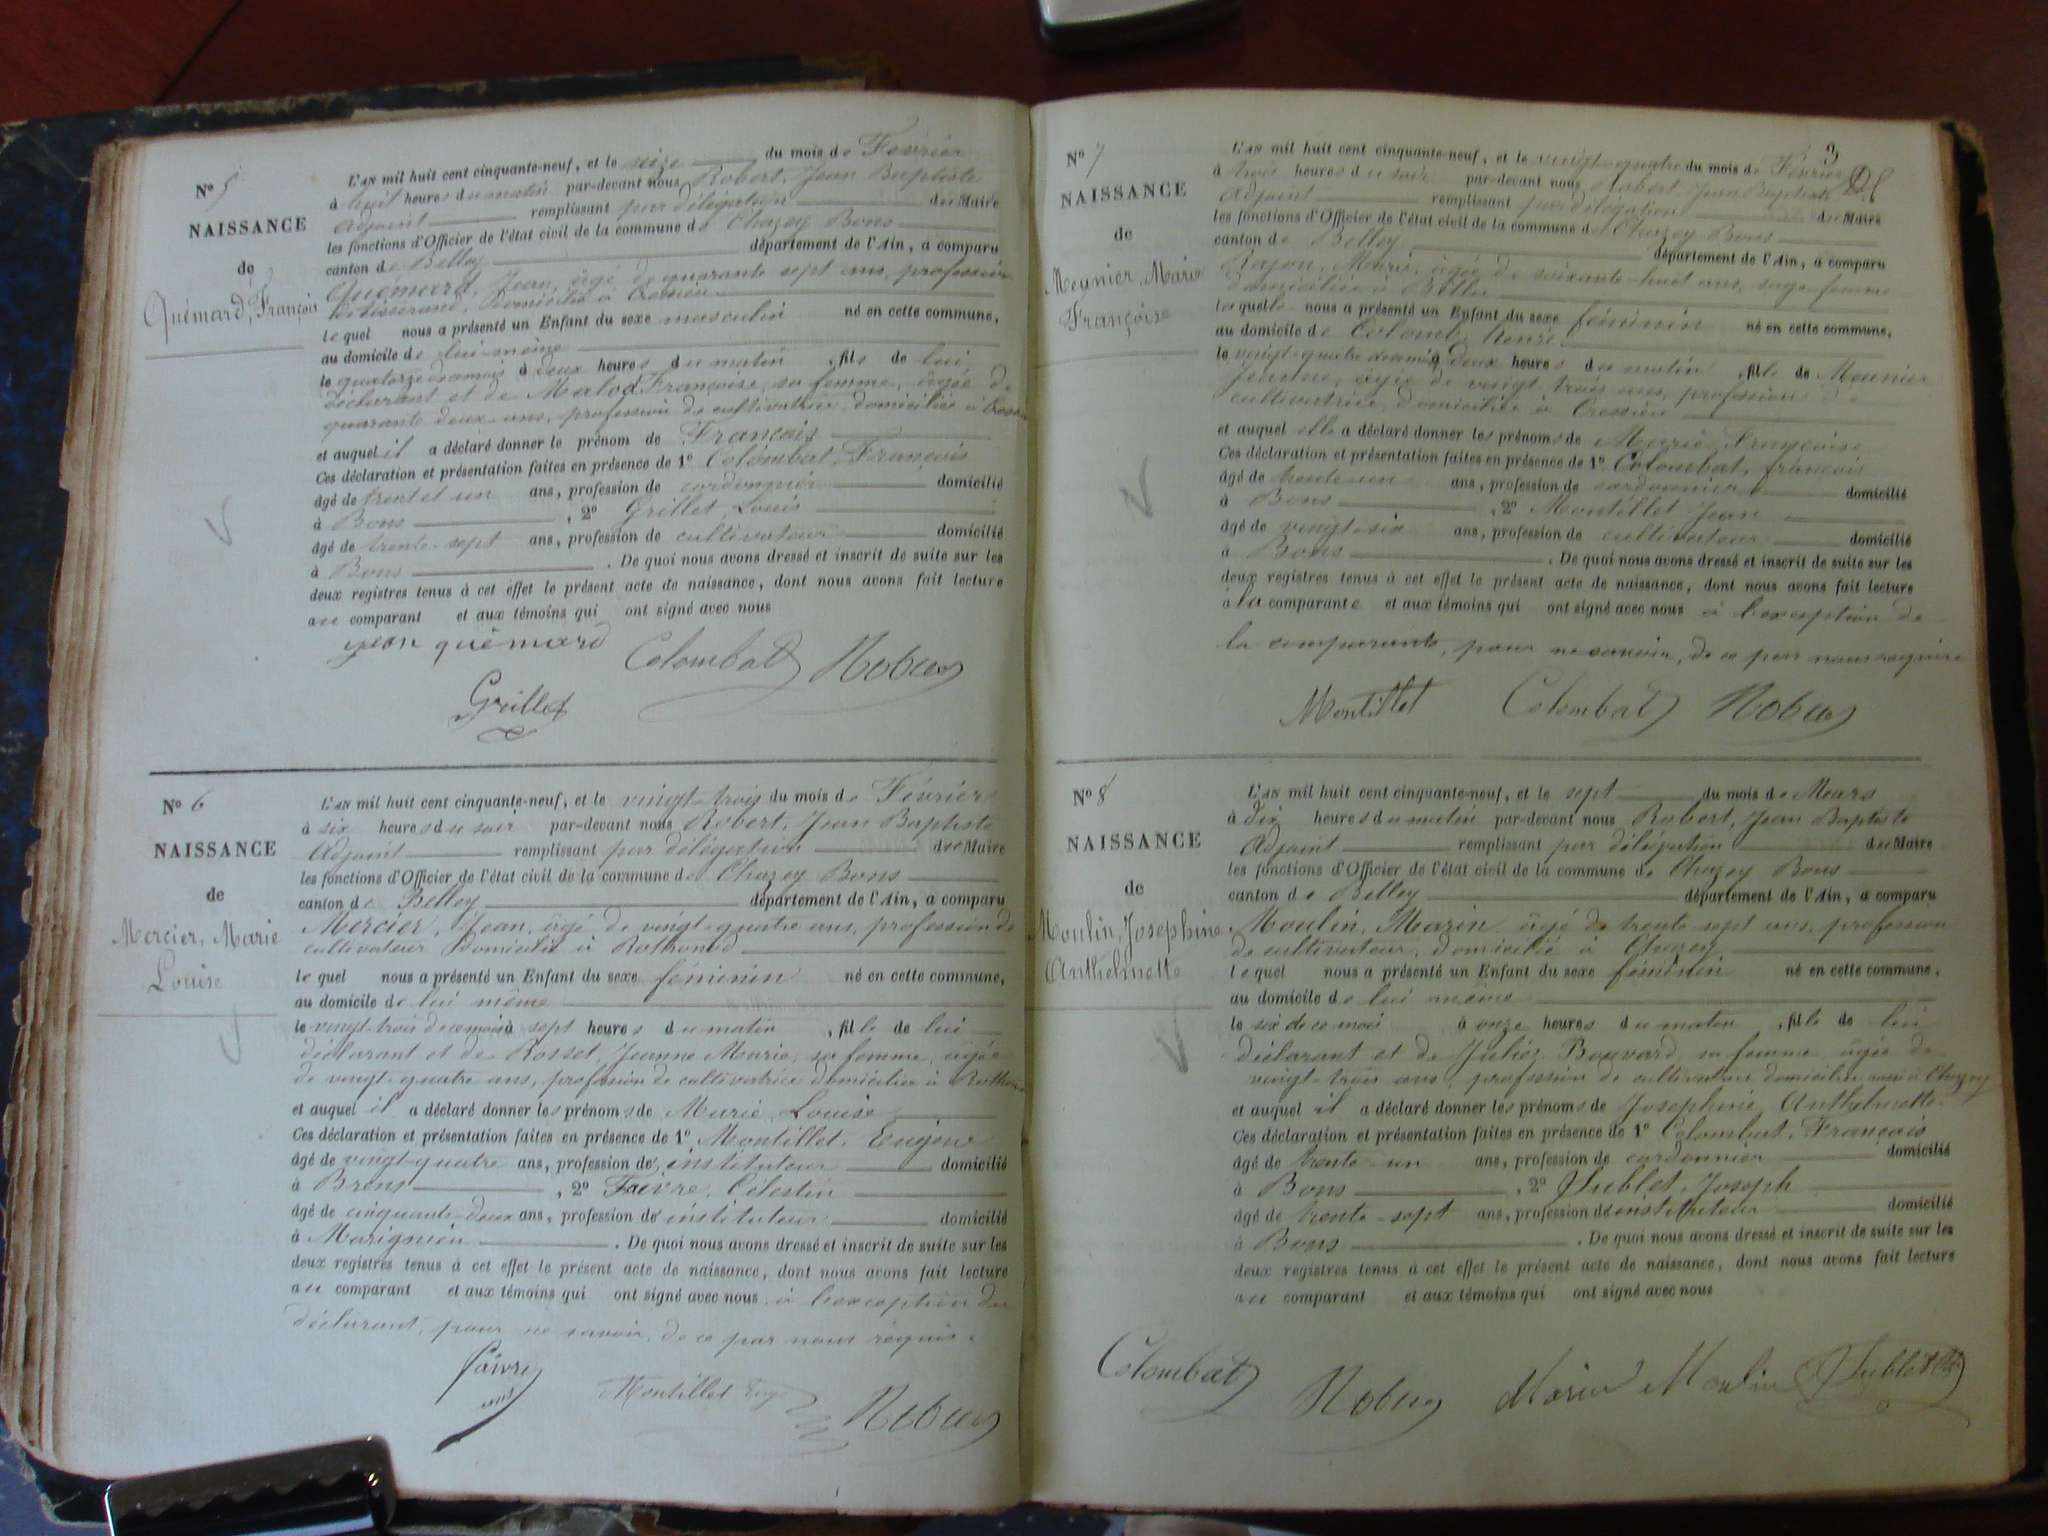 N° 5
NAISSANCE
de
Quémard, François
L'AN mil huit cent cinquante-neuf, et le seize du mois de Février
à huit heures du matin par-devant nous Robert, Jean Baptiste
Adjoint remplissant par délégation du Maire
les fonctions d'Officier de l'état civil de la commune de Chazey Bons
canton de Belley département de l'Ain, a comparu
Quémard, Jean, âgé de quarante sept ans, profession
de tisserand, domicilié à
le quel nous a présenté un Enfant du sexe masculin né en cette commune,
au domicile de lui-même
le quatorze du mois à deux heures du matin, fils de lui
déclarant et de Françoise, sa femme, âgée de
quarante deux ans, profession de cultivatrice, domiciliée à
et auquel il a déclaré donner le prénom de François
Ces déclaration et présentation faites en présence de 1° Colombat, François
âgé de trent et un ans, profession de cordonnier domicilié
à Bons, 2° Grillet, Louis
âgé de trente-sept ans, profession de cultivateur domicilié
à Bons. De quoi nous avons dressé et inscrit de suite sur les
deux registres tenus à cet effet le présent acte de naissance, dont nous avons fait lecture
au comparant et aux témoins qui ont signé avec nous
jean quémard Colombat Robert
Grillet
N° 6
NAISSANCE
de
Mercier, Marie
Louise
L'AN mil huit cent cinquante-neuf, et le vingt-trois du mois de Février
à six heures du soir par-devant nous Robert, Jean Baptiste
Adjoint remplissant par délégation du Maire
les fonctions d'Officier de l'état civil de la commune de Chazey Bons
canton de Belley département de l'Ain, a comparu
Mercier, Jean, âgé de vingt-quatre ans, profession de
cultivateur domicilié à Rothonod
le quel nous a présenté un Enfant du sexe féminin né en cette commune,
au domicile de lui même
le vingt-trois de ce mois à sept heures du matin, fille de lui
déclarant et de Rosset, Jeanne Marie, sa femme, âgée
de vingt-quatre ans, profession de cultivatrice domiciliée à
et auquel il a déclaré donner les prénoms de Marie, Louise
Ces déclaration et présentation faites en présence de 1° Montillet, Eugène
âgé de vingt-quatre ans, profession de instituteur domicilié
à Brens, 2° Faivre, Célestin
âgé de cinquante-deux ans, profession de instituteur domicilié
à Marignieu. De quoi nous avons dressé et inscrit de suite sur les
deux registres tenus à cet effet le présent acte de naissance, dont nous avons fait lecture
au comparant et aux témoins qui ont signé avec nous à l'exception du
déclarant, pour ne savoir, de ce par nous requis.
faivre Montillet Robert
3
N° 7
NAISSANCE
de
Meunier, Marie
Françoise
L'AN mil huit cent cinquante-neuf, et le vingt-quatre du mois de Février
à trois heures du soir par-devant nous Robert, Jean Baptiste
Adjoint remplissant par délégation du Maire
les fonctions d'Officier de l'état civil de la commune de Chazey Bons
canton de Belley département de l'Ain, a comparu
Marie, âgée de soixante-huit ans, sage-femme
domiciliée à
laquelle nous a présenté un Enfant du sexe féminin né en cette commune,
au domicile de
le vingt-quatre du mois à deux heures du matin, fille de Meunier
Jeanne, âgée de vingt-trois ans, profession de
cultivatrice, domiciliée à Cressieu
et auquel elle a déclaré donner les prénoms de Marie, Françoise
Ces déclaration et présentation faites en présence de 1° Colombat, françois
âgé de trente-un ans, profession de cordonnier domicilié
à Bons, 2° Montillet Jean
âgé de vingt-six ans, profession de cultivateur domicilié
à Bons. De quoi nous avons dressé et inscrit de suite sur les
deux registres tenus à cet effet le présent acte de naissance, dont nous avons fait lecture
à la comparante et aux témoins qui ont signé avec nous à l'exception de
la comparante, pour ne savoir, de ce par nous requise
Montillet Colombat Robert
N° 8
NAISSANCE
de
Moulin, Josephine
Anthelmette
L'AN mil huit cent cinquante-neuf, et le sept du mois de Mars
à dix heures du matin par-devant nous Robert, Jean Baptiste
Adjoint remplissant par délégation du Maire
les fonctions d'Officier de l'état civil de la commune de Chazey Bons
canton de Belley département de l'Ain, a comparu
Moulin, Marin âgé de trente sept ans, profession
de cultivateur, domicilié à Chazey
le quel nous a présenté un Enfant du sexe féminin né en cette commune,
au domicile de lui même
le six de ce mois à onze heures du matin, fille de lui
déclarant et de Bouvard, sa femme, âgée de
vingt-trois ans, profession de cultivatrice domiciliée à Chazey
et auquel il a déclaré donner les prénoms de Josephine Anthelmette
Ces déclaration et présentation faites en présence de 1° Colombat, Francois
âgé de trente-un ans, profession de cordonnier domicilié
à Bons, 2° Sublet, Joseph
âgé de trente-sept ans, profession de instituteur domicilié
à Bons. De quoi nous avons dressé et inscrit de suite sur les
deux registres tenus à cet effet le présent acte de naissance, dont nous avons fait lecture
au comparant et aux témoins qui ont signé avec nous
Colombat Robert Marin Moulin Sublet